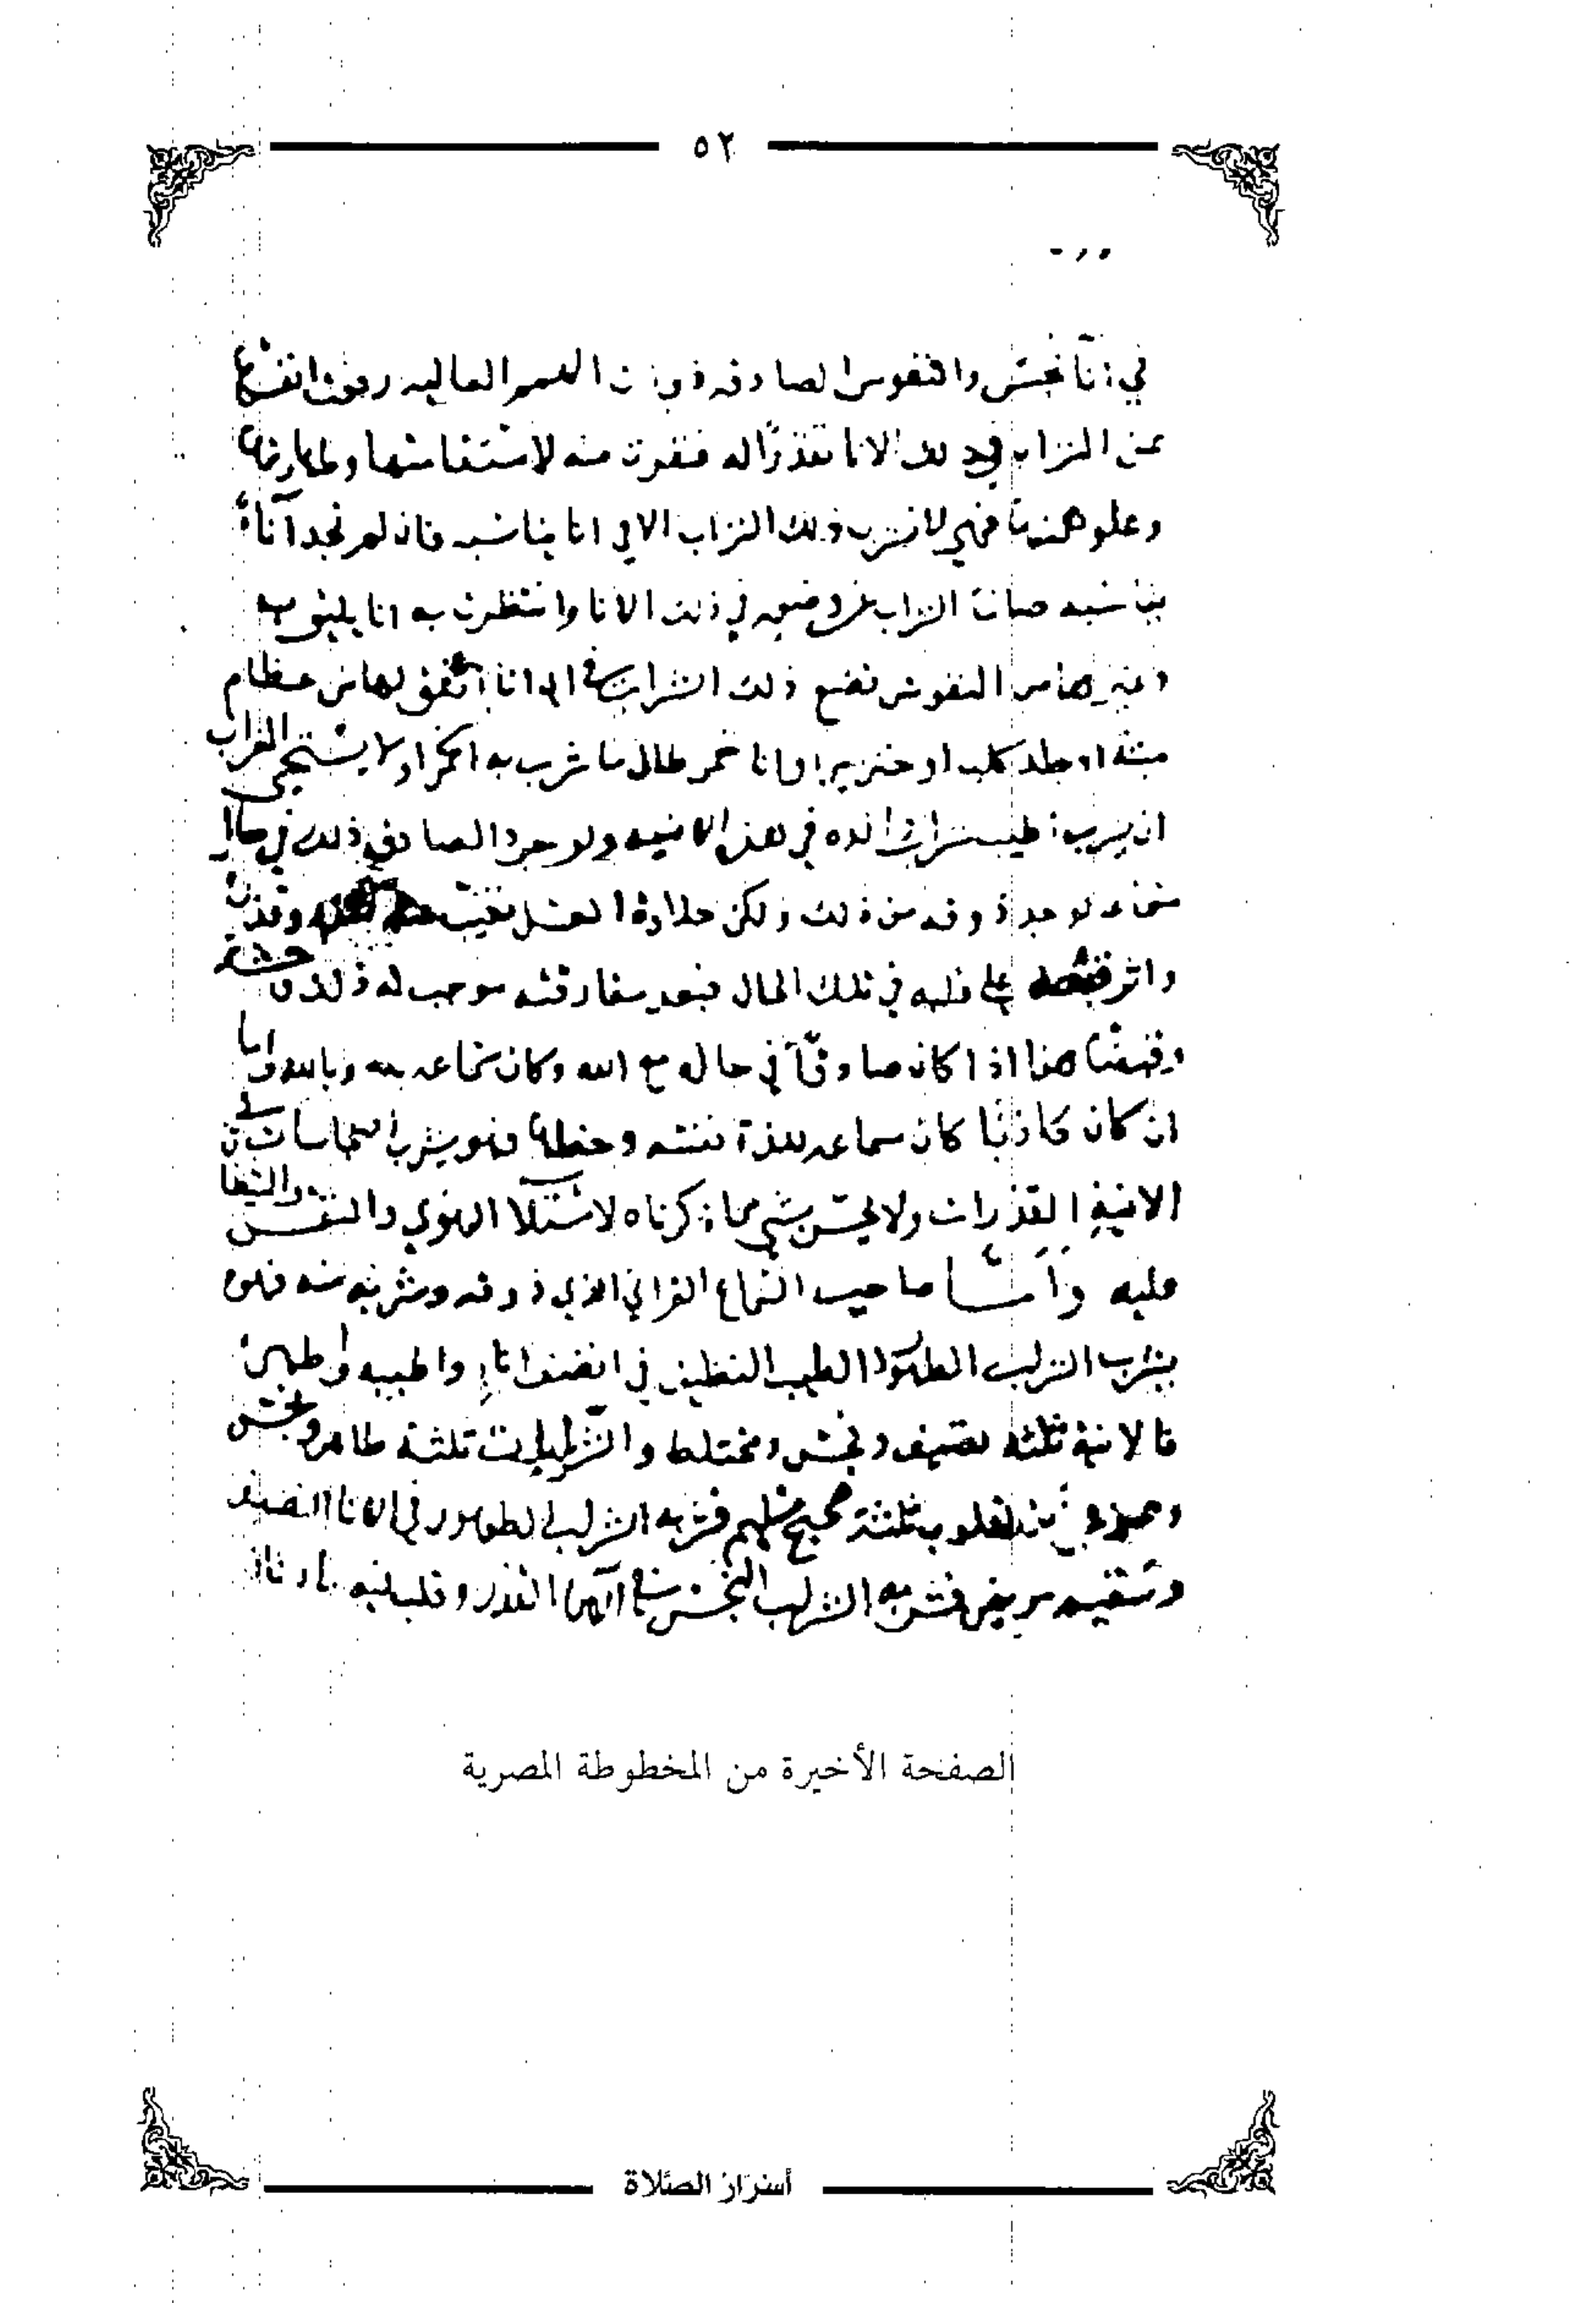 ٥٢
في انآ نجس والنفوس الصادقه ذوات الهمم العاليه رفعت انفسها
عن الشراب في ذلك الانا تقذرًا له فنفرت منه لاستقامتها وطهارتها
وعلو همتها فهي لا تشرب ذلك الشراب الا في انا يناسبه فاذا لم تجد آناءً
يناسبه صانت الشراب عن وضعه في ذلك الانا وانتظرت به انا يليق به
وغيرها من النفوس تضع ذلك الشراب في اي انا اتفق لها من عظام
ميتة او جلد كلب او خنزير او انا خمر طال ما شرب به الخمر اولا يستحي الغراب
ان يشرب اطيب شراب الذه في هذه الانيه ولو جرد الصادق ذلك في حال
سماعه لوجد ذوقه من ذلك ولكن حلاوة العسل تغيب
واثر على قلبه في تلك الحال فبعد مفارقته موجب له ذلك
هذا اذا كان صادقًا في حاله مع الله وكان سماعه لله وبالله واما
ان كان كاذبًا كان سماعه للذة نفسه وحظها فهو يشرب النجاسات في
الانية القذرات ولا يحس بشي مما ذكرناه لاستيلا الهوي والنفس والشيطان
عليه وأمّا صاحب السماع القراني الذي ذوقه وشربه منه فهو
يشرب الشراب الطهور الطيب النظيف في انظف اناء واطيبه واطهره
فالانية ثلثه نظيف ونجس ومختلط والشرابات ثلثة طاهر ونجس
وممزوج والقلوب ثلثة صحيح سليم فشربه الشراب الطهور في الانا النظيف
وسقيم مريض فشربه الشراب النجس في الانا القذر وقلب فيه
الصفحة الأخيرة من المخطوطة المصرية
أسرار الصلاة